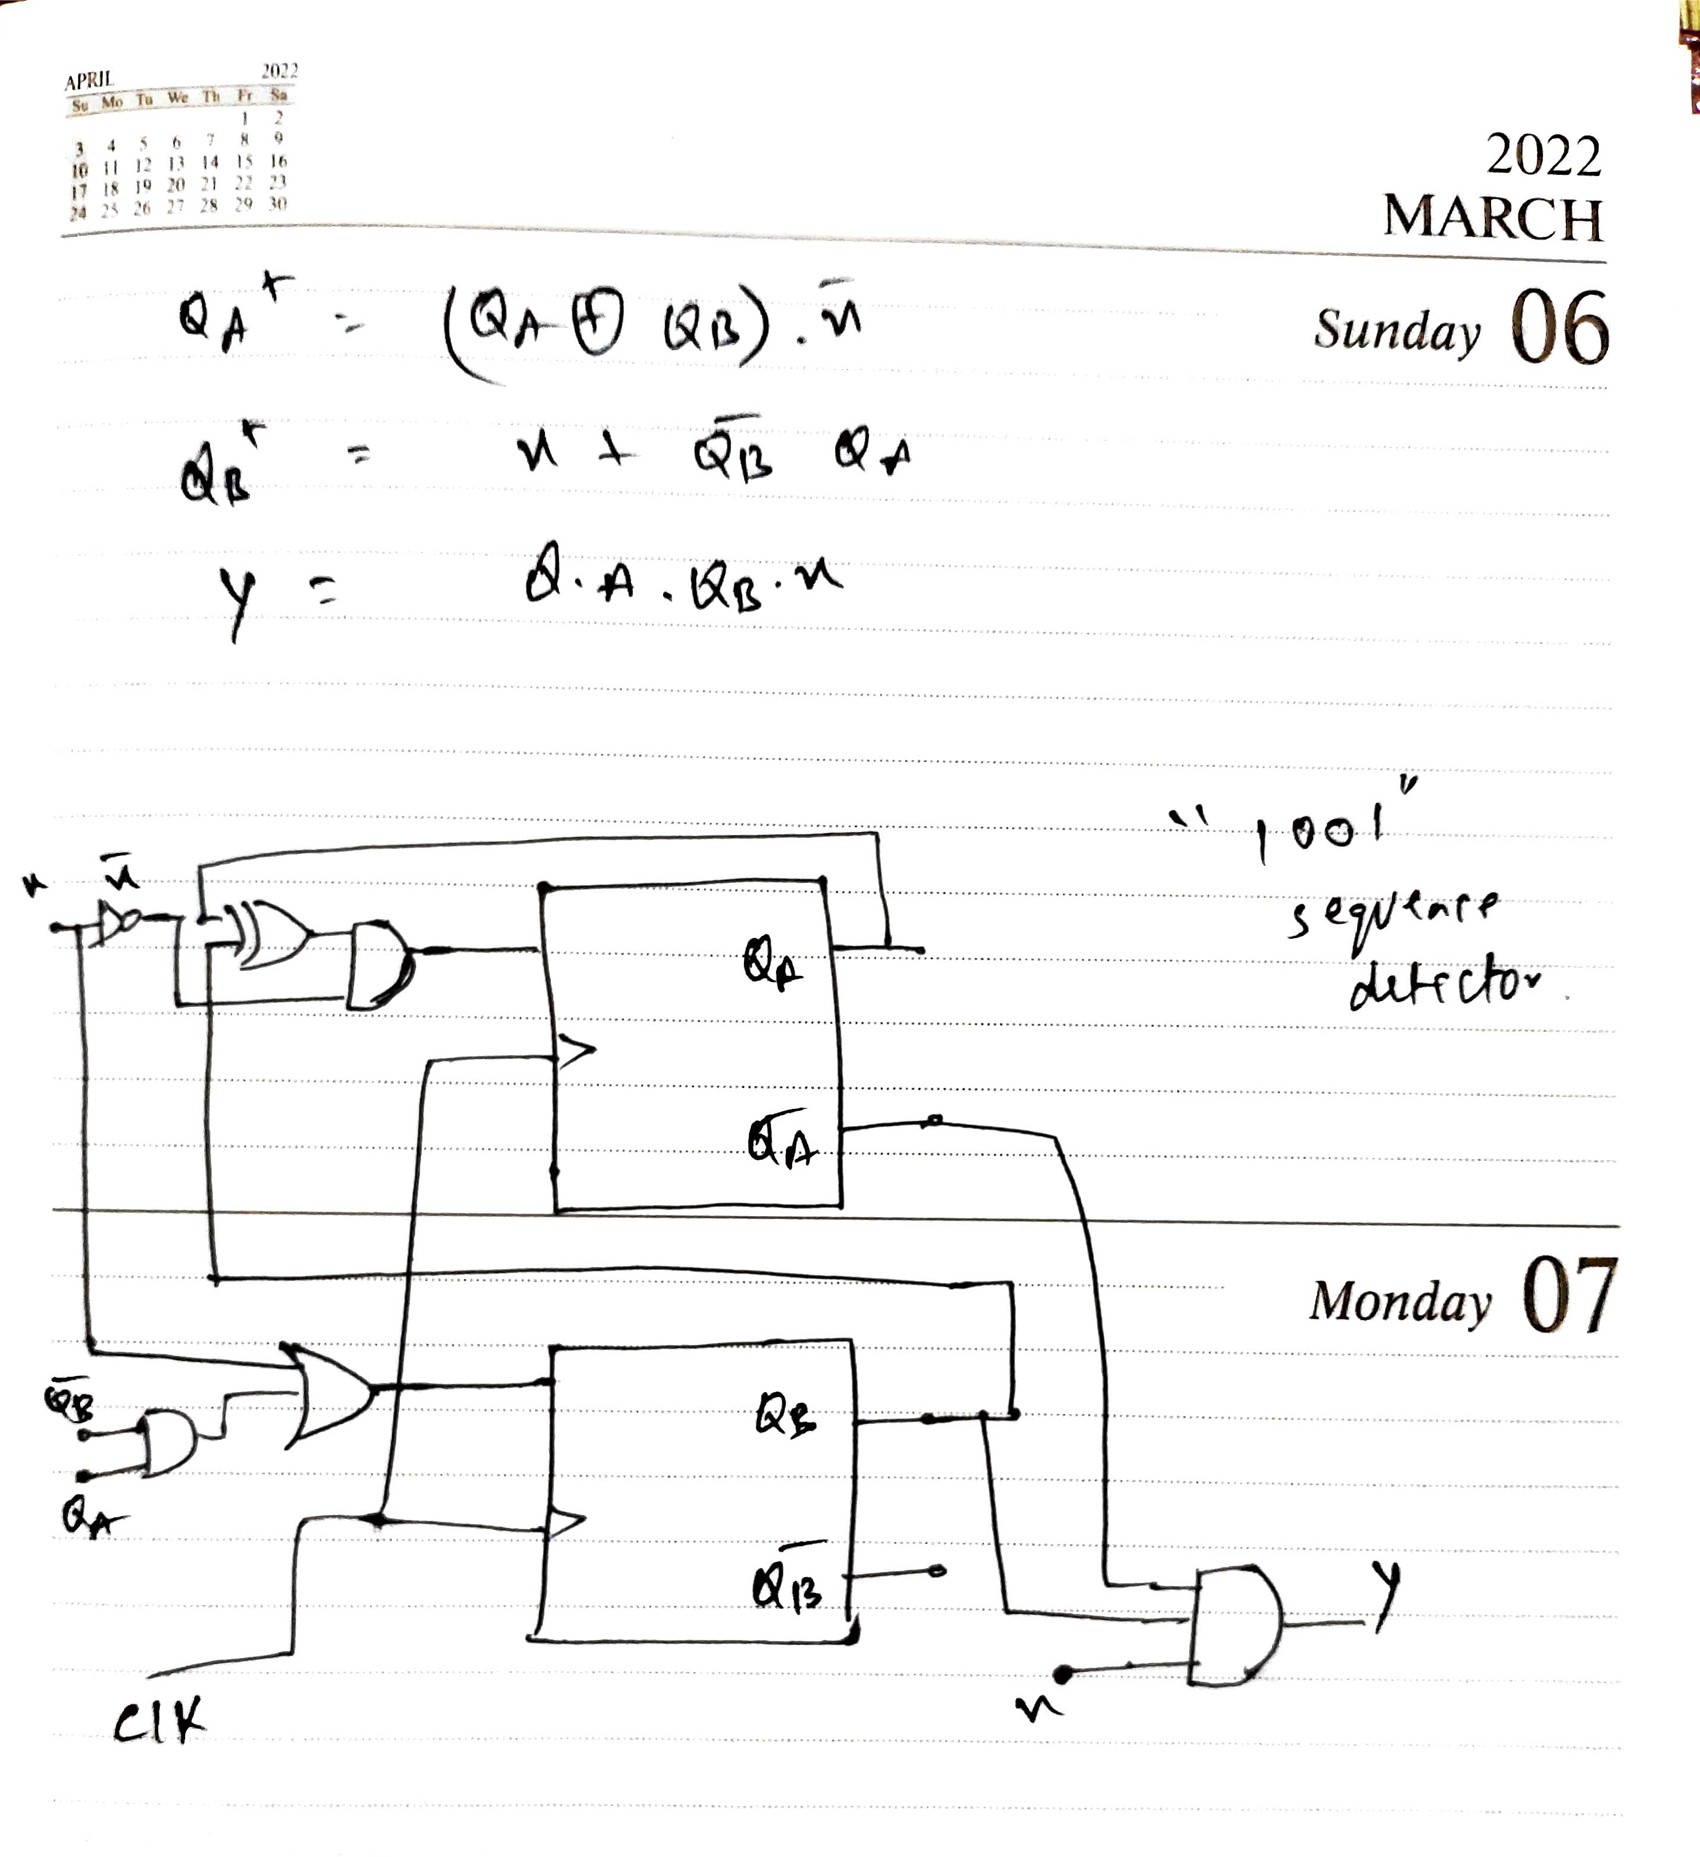 APRIL 2022
Su Mo Tu We Th Fr Sa
1 2
3 4 5 6 7 8 9
10 11 12 13 14 15 16
17 18 19 20 21 22 23
24 25 26 27 28 29 30
2022
MARCH
Sunday 06
QA⁺ = (QA ⊕ QB) . x̄
QB⁺ = x + Q̄B QA
Y = Q.A.QB.x
"1001"
sequence
detector.
x x̄
QA
Q̄A
Monday 07
Q̄B
QB
QA
Q̄B
Y
x
ClK